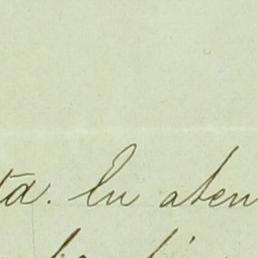 ta. En aten